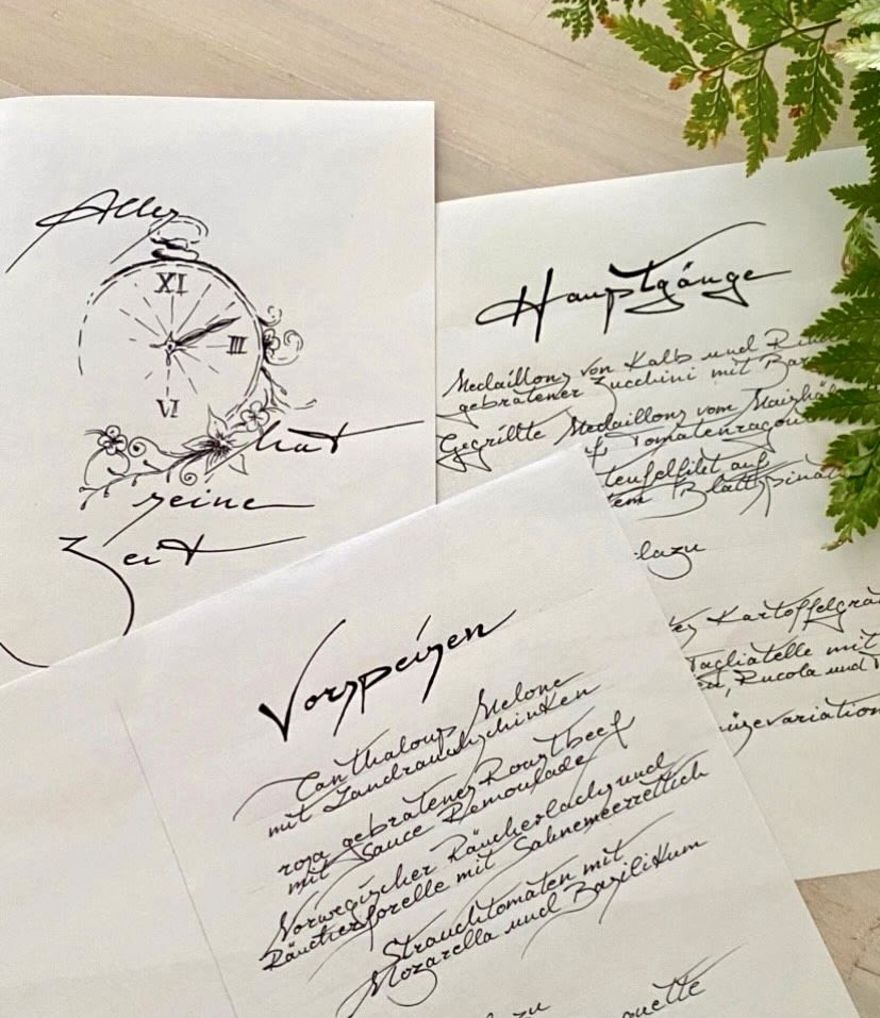 Alles
XI
III
VI
hat
seine
Zeit
Hauptgänge
Medaillons von Kalb und
gebratener Zucchini mit
Gegrillte Medaillons vom
Tomatenragou
teufelfilet auf
Blattspinat
dazu
Kartoffelgra
Tagliatelle mit
Rucola und
üsevariation
Vorspeisen
Canthaloup Melone
mit Landrauchschinken
rosa gebratenes Roastbeef
mit Sauce Remoulade
Norwegischer Räucherlachs und
Räucherforelle mit Sahnemeerrettich
Strauchtomaten mit
Mozarella und Basilikum
zu
quette